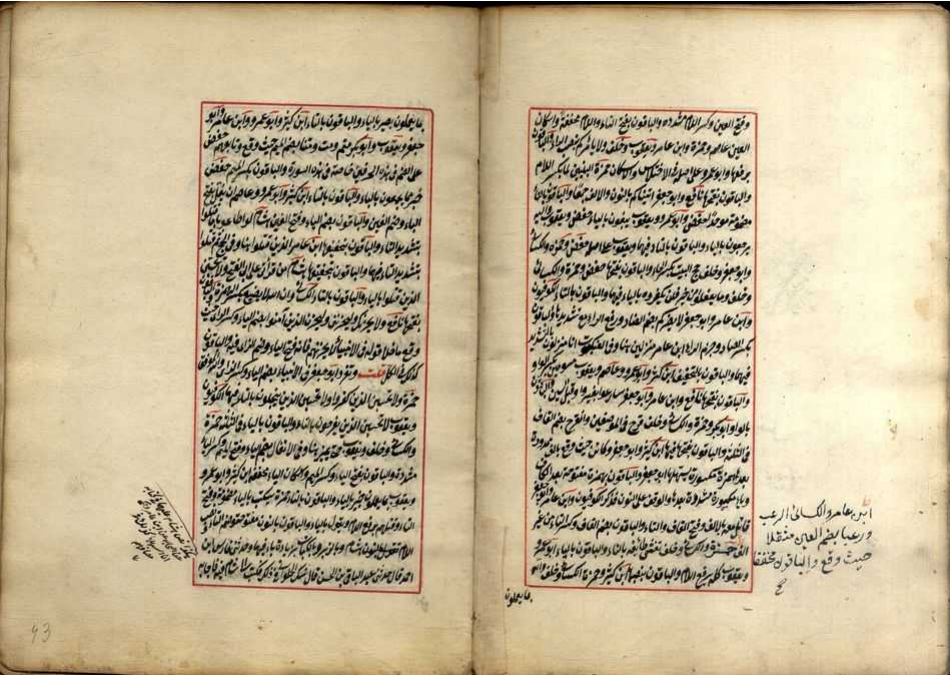 وفتح العين وكسر اللام مشددة والباقون بفتح التاء واللام مخففة واسكان
العين عاصم وحمزة وابن عامر ويعقوب وخلف ولا يامركم بنصب الراء والباقون
برفعها وابو عمرو على اصله في الاختلاس والاسكان حمزة النبيين لما بكسر اللام
والباقون بفتحها نافع وابو جعفر اتيناكم بالنون والالف جمعا والباقون بالتاء
مضمومة موحدا حفص وابو عمرو ويعقوب يبغون بالياء حفص ويعقوب واليه
يرجعون بالياء والباقون بالتاء فيهما ويعقوب على اصله حفص وحمزة والكسائي
وابو جعفر وخلف حج البيت بكسر الحاء والباقون بفتحها حفص وحمزة والكسائي
وخلف وما يفعلوا من خير فلن يكفروه بالياء فيهما والباقون بالتاء الكوفيون
وابن عامر وابو جعفر لا يضركم بضم الضاد ورفع الراء مع تشديدها والباقون
بكسر الضاد وجزم الراء ابن عامر منزلين هنا وفي العنكبوت انا منزلون بالتشديد
فيهما والباقون بالتخفيف ابن كثير وابو عمرو وعاصم ويعقوب مسومين بكسر الواو
والباقون بفتحها نافع وابن عامر وابو جعفر سارعوا بغير واو قبل السين والباقون
بالواو ابو بكر وحمزة والكسائي وخلف قرح في الموضعين والقرح بضم القاف
في الثلثة والباقون بفتحها فيها ابن كثير وابو جعفر وكائن حيث وقع بالف ممدودة
بعدها همزة مكسورة وسهلها ابو جعفر والباقون بهمزة مفتوحة بعد الكاف
وياء مكسورة مشددة بعدها والوقف على النون قد ذكر الكوفيون وابن عامر وابو جعفر
قاتل معه بالالف وفتح القاف والتاء والباقون بضم القاف وكسر التاء من غير
الف حمزة والكسائي وخلف تغشى طائفة بالتاء والباقون بالياء ابو عمرو
ويعقوب كله لله برفع اللام والباقون بنصبها ابن كثير وحمزة والكسائي وخلف والله
بما يعملون
ابن عامر والكسائى الرعب
ورعبا بضم العين مثقلا
حيث وقع والباقون مخففا
بما يعملون بصير بالياء والباقون بالتاء ابن كثير وابو عمرو وابن عامر وابو
جعفر ويعقوب وابو بكر متم ومت ومتنا بضم الميم حيث وقع وتابعهم حفص
على الضم في هذا الموضعين خاصة في هذه السورة والباقون بكسر الميم حفص
خير مما يجمعون بالياء والباقون بالتاء ابن كثير وابو عمرو وعاصم ان يغل بفتح
الياء وضم الغين والباقون بضم الياء وفتح الغين هشام لو اطاعونا ما قتلوا
بتشديد التاء والباقون بتخفيفها ابن عامر الذين قتلوا هنا وفي الحج ثم قتلوا
بتشديد التاء فيهما والباقون بتخفيفها هشام من قراءتي على ابي الفتح ولا يحسبن
الذين قتلوا بالياء والباقون بالتاء الكسائي وان الله لا يضيع بكسر الهمزة والباقون
بفتحها نافع ولا يحزنك وليحزنني وليحزن الذين امنوا بضم الياء وكسر الزاي حيث
وقع ما خلا قوله في الانبياء لا يحزنهم فانه فتح الياء وضم الزاي فيه والباقون
كذلك في الكل قلت وتفرد ابو جعفر في الانبياء بضم الياء وكسر الزاي والله الموفق
حمزة ولا تحسبن الذين كفروا ولا تحسبن الذين يبخلون بالتاء فيهما الكوفيون
ويعقوب لا تحسبن الذين يفرحون بالتاء والباقون بالياء في الثلثة حمزة
والكسائي وخلف ويعقوب حتى يميز هنا وفي الانفال بضم الياء وفتح الميم وكسر الياء
مشددة والباقون بفتح الياء وكسر الميم واسكان الياء مخففة ابن كثير وابو عمرو
ويعقوب بما يعملون خبير بالياء والباقون بالتاء حمزة سيكتب بالياء مضمومة وفتح
التاء وقتلهم برفع اللام ويقول بالياء والباقون بالنون مفتوحة وضم التاء ونصب
اللام ونقول بالنون هشام وبالزبر وبالكتاب بزيادة باء فيهما وحدثني فارس ابن
احمد قال حدثني عبد الباقي بن الحسن قال شك الحلواني في ذلك فكتب الى هشام فيه فاجابه
93